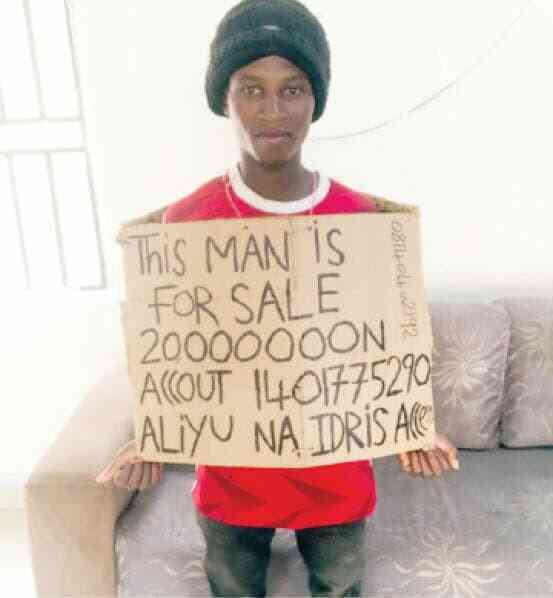 This MAN iS
FOR SALE
20000000N
ACCOUT 1401775290
ALiYU NA IDRIS